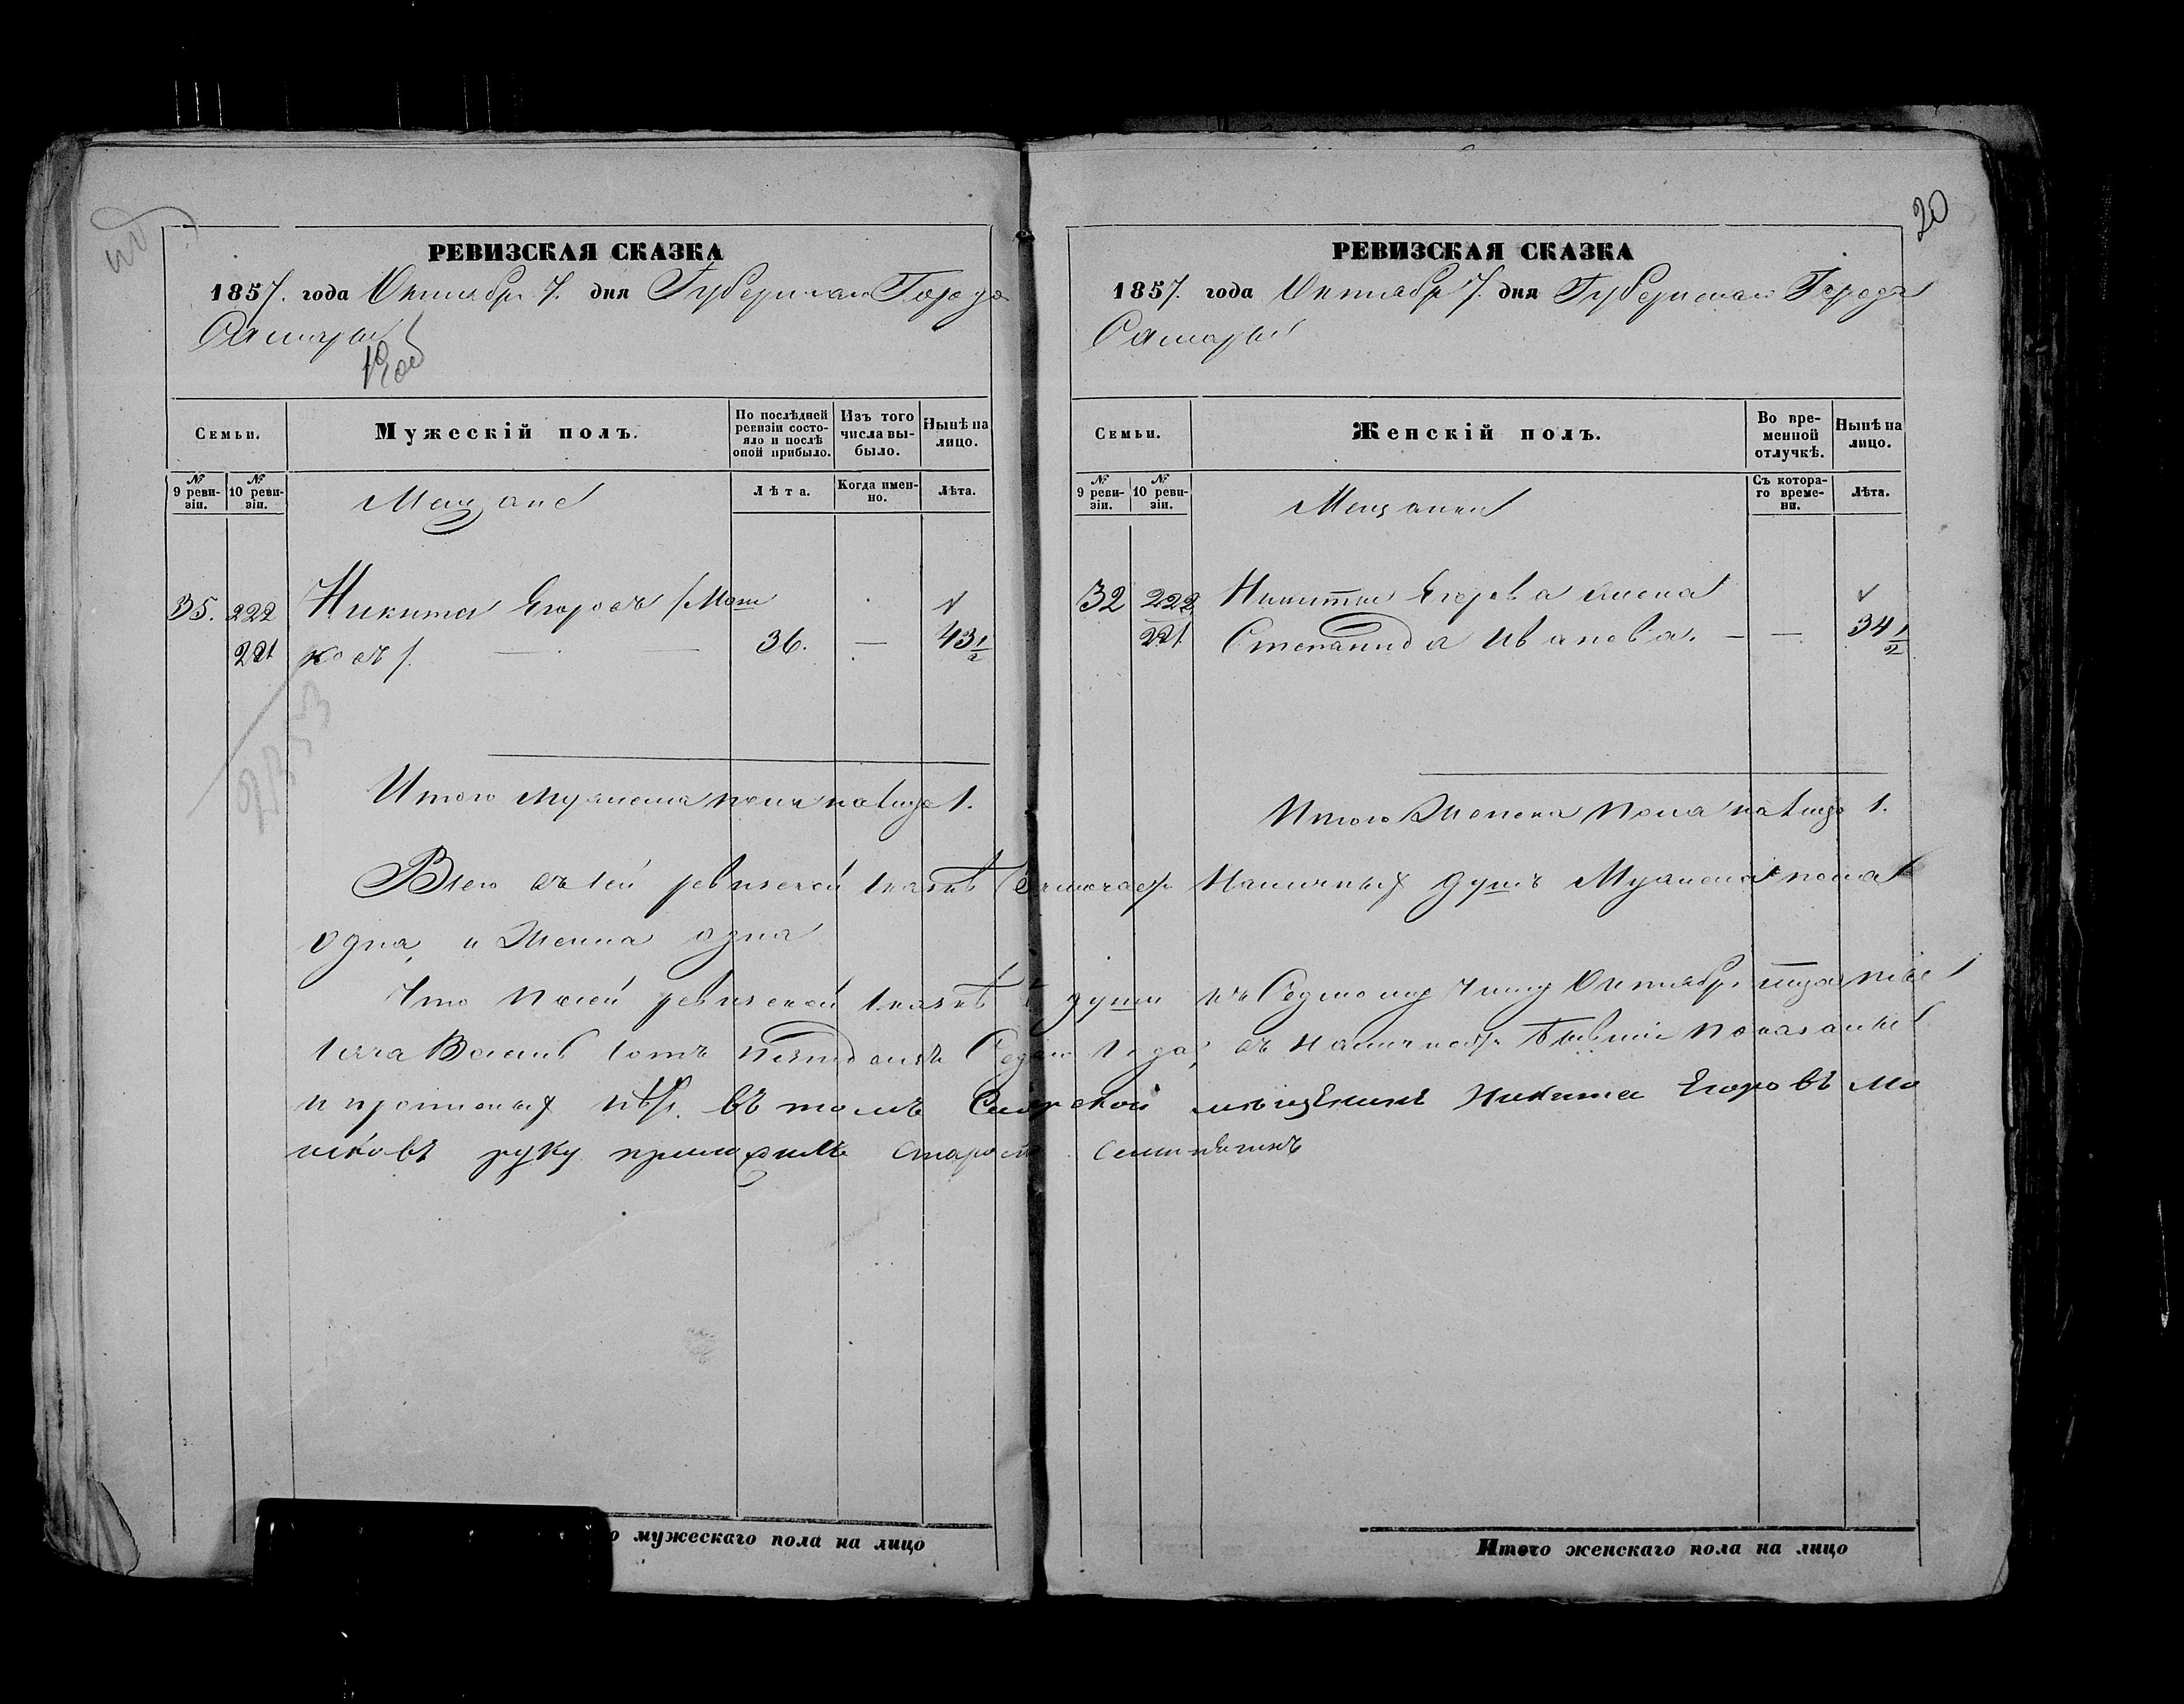 20
РЕВИЗСКАЯ СКАЗКА
1857. года Октября 7. дня Губернскаго Города
Самары
Семьи.
Мужескій полъ.
По послѣдней ревизіи состояло и послѣ оной прибыло.
Изъ того числа выбыло.
Нынѣ на лицо.
№ 9 ревизіи.
№ 10 ревизіи.
Мещане
Лѣта.
Когда именно.
Лѣта.
35. 222 Никита Егоровъ /Маш
221 ковъ/. — — 36. — 43 1/2
2353
Итого мужеска пола на лицо 1.
РЕВИЗСКАЯ СКАЗКА
1857. года Октября 7. дня Губернскаго Города
Самары
Семьи.
Женскій полъ.
Во временной отлучкѣ.
Нынѣ на лицо.
№ 9 ревизіи.
№ 10 ревизіи.
Мещанки
Съ котораго времени.
Лѣта.
32 222 Никиты Егорова жена
221 Степанида Иванова. — — 34 1/2
Итого Женска пола на лицо 1.
Всего въ сей ревизской сказкѣ наличныхъ душъ Мужеска пола
одна, и Женска одна
Что по сей ревизской сказкѣ души къ Седьмому числу Октября тысяча
восемь сотъ пятьдесятъ Седьмаго года, въ наличности бывшіе показаны
и прописныхъ нѣтъ. въ томъ Самарской мѣщенинъ Никита Егоровъ Ма
шковъ руку приложилъ староста
о мужескаго пола на лицо
Итого женскаго пола на лицо